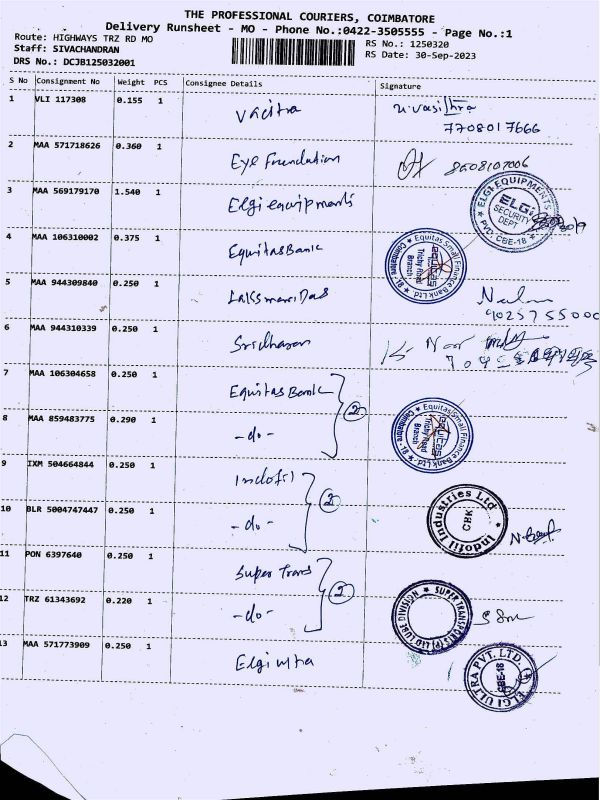 THE PROFESSIONAL COURIERS, COIMBATORE
Delivery Runsheet - MO - Phone No.:0422-3505555 - Page No.:1
Route: HIGHWAYS TRZ RD MO
RS No.: 1250320
Staff: SIVACHANDRAN
RS Date: 30-Sep-2023
DRS No.: DCJB125032001
S No Consignment No Weight PCS Consignee Details Signature
1 VLI 117308 0.155 1 Vacitra
7708017666
2 MAA 571718626 0.360 1 Eye Foundation 8608107006
3 MAA 569179170 1.540 1 Elgi equipments
ELGI EQUIPMENTS PVT. CBE-18
ELGi SECURITY DEPT
4 MAA 106310002 0.375 1 Equitas Bank
Equitas Small Finance Bank Ltd. Coimbatore - 18.
equitas Trichy Road Branch
5 MAA 944309840 0.250 1 Laksmanan Das
9025755000
6 MAA 944310339 0.250 1 Sridharan
7 MAA 106304658 0.250 1 Equitas Bank
2
8 MAA 859483775 0.290 1 -do-
Equitas Small Finance Bank Ltd. Coimbatore - 18.
equitas Trichy Road Branch
9 IXM 504664844 0.250 1 Indofil
2
10 BLR 5004747447 0.250 1 -do-
Indofil Industries Ltd
CBK
11 PON 6397640 0.250 1 Super Trans
2
12 TRZ 61343692 0.220 1 -do-
SUPER TRANSPORTS (P) LTD LUBE DIVISION
13 MAA 571773909 0.250 1 Elgi ultra
ELGI ULTRA PVT. LTD.
CBE-18